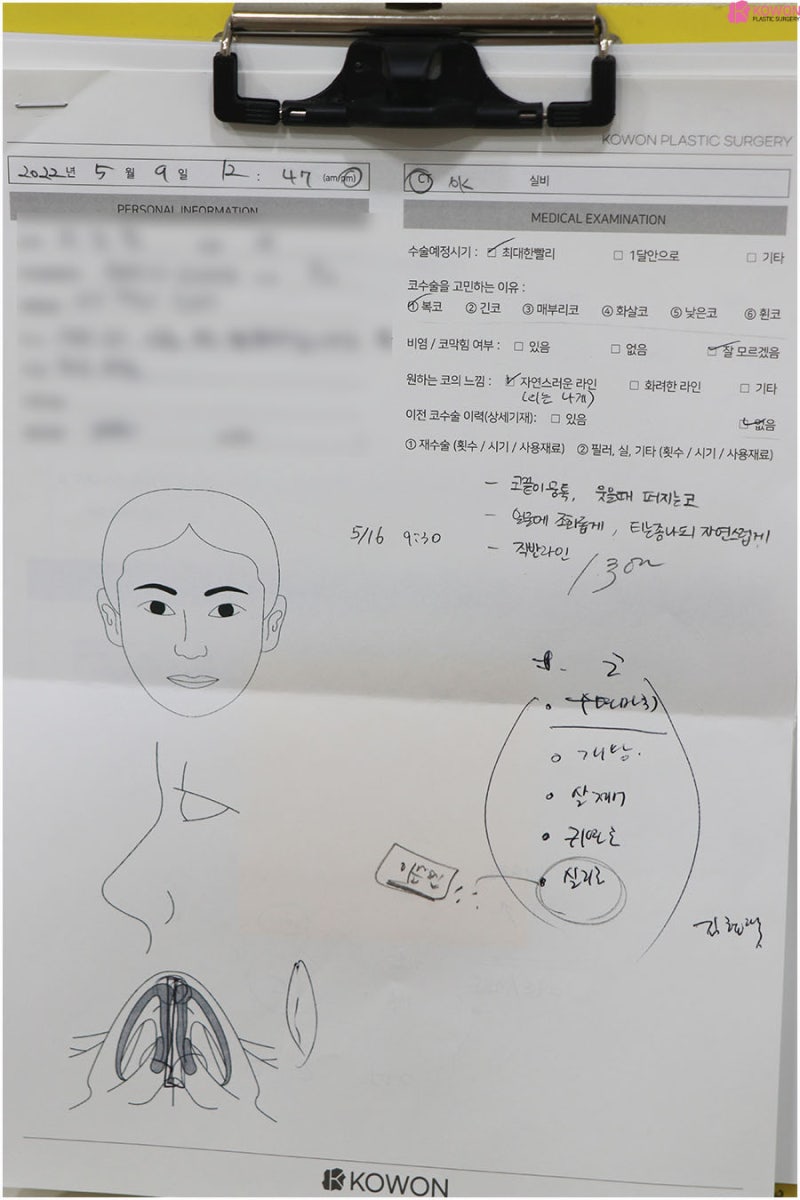 KOWON
PLASTIC SURGERY
KOWON PLASTIC SURGERY
2022년 5월 9일 12 : 47 (am/pm)
CT OK 실비
PERSONAL INFORMATION
MEDICAL EXAMINATION
수술예정시기 : ☑ 최대한빨리 □ 1달안으로 □ 기타
코수술을 고민하는 이유 :
① 복코 ② 긴코 ③ 매부리코 ④ 화살코 ⑤ 낮은코 ⑥ 휜코
비염 / 코막힘 여부 : □ 있음 □ 없음 ☑ 잘 모르겠음
원하는 코의 느낌 : ☑ 자연스러운 라인 □ 화려한 라인 □ 기타
(티는 나게)
이전 코수술 이력(상세기재): □ 있음 ☑ 없음
① 재수술 (횟수 / 시기 / 사용재료) ② 필러, 실, 기타 (횟수 / 시기 / 사용재료)
- 코끝이 뭉툭, 웃을때 퍼지는코
5/16 9:30
- 얼굴에 조화롭게, 티는좀나되 자연스럽게
- 직반라인
개방.
귀연골
실리콘
KOWON